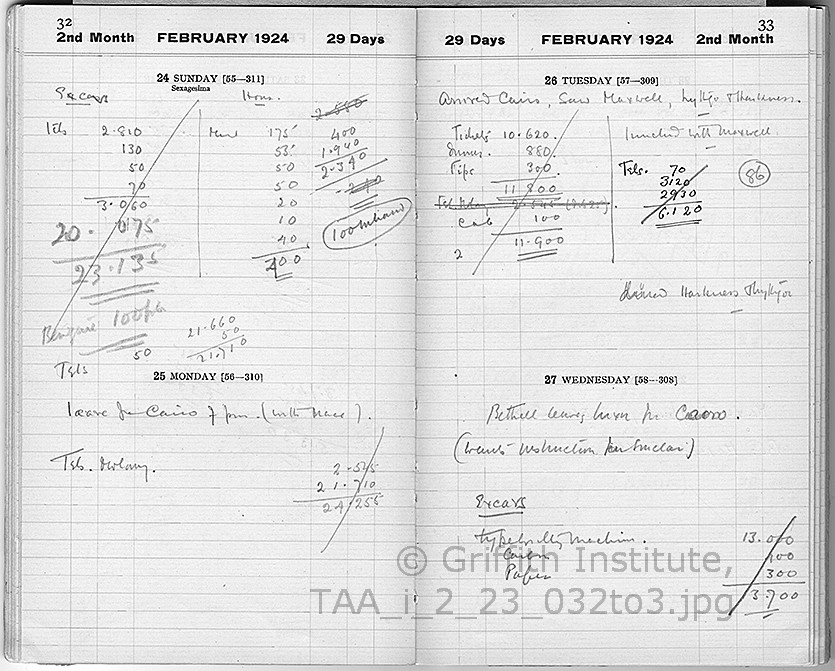 32
2nd Month FEBRUARY 1924 29 Days
24 SUNDAY [55—311]
Sexagesima
Excavs
Hous.
Tels 2.810
130
50
70
3.060
20. 075
23.135
175
55
50
50
20
10
40
400
400
1.940
2.340
21.660
50
21.710
100
50
Tels
25 MONDAY [56—310]
leave for Cairo 7 pm. (with Mace).
Tels.
2.545
21.710
24.255
33
29 Days FEBRUARY 1924 2nd Month
26 TUESDAY [57—309]
Arrived Cairo, Saw Maxwell, Lythgoe & Harkness.
Tickets 10.620.
Dinner. 880.
Tips 300
11 800
Cab 100
11.900
2
lunched with Maxwell
Tels. 70
3120
2930
6.120
86
Dined Harkness & Lythgoe
27 WEDNESDAY [58—308]
Bethell leaves Luxor for Cairo.
(wants instruction for Sinclair)
Excavs
typewriting machine. 13.000
Carbon 100
Paper 300
3.700
© Griffith Institute,
TAA_i_2_23_032to3.jpg